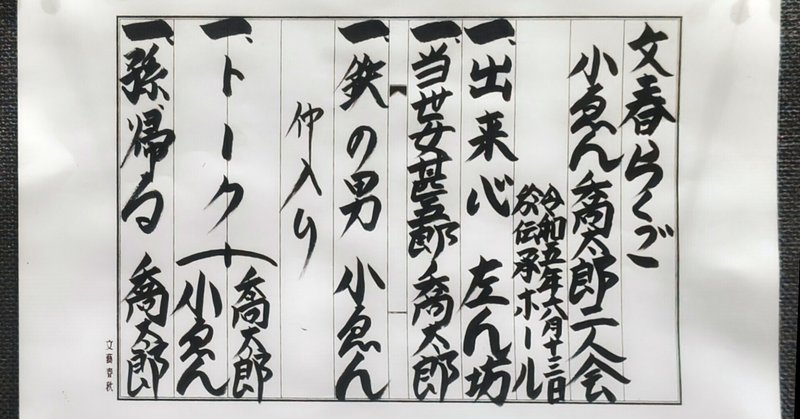 文春らくご
小ゑん喬太郎二人会
令和五年六月十三日
於伝承ホール
一、出来心 左ん坊
一、当世女甚五郎 喬太郎
一、鉄の男 小ゑん
仲入り
一、トーク
喬太郎
小ゑん
一、孫帰る 喬太郎
文藝春秋